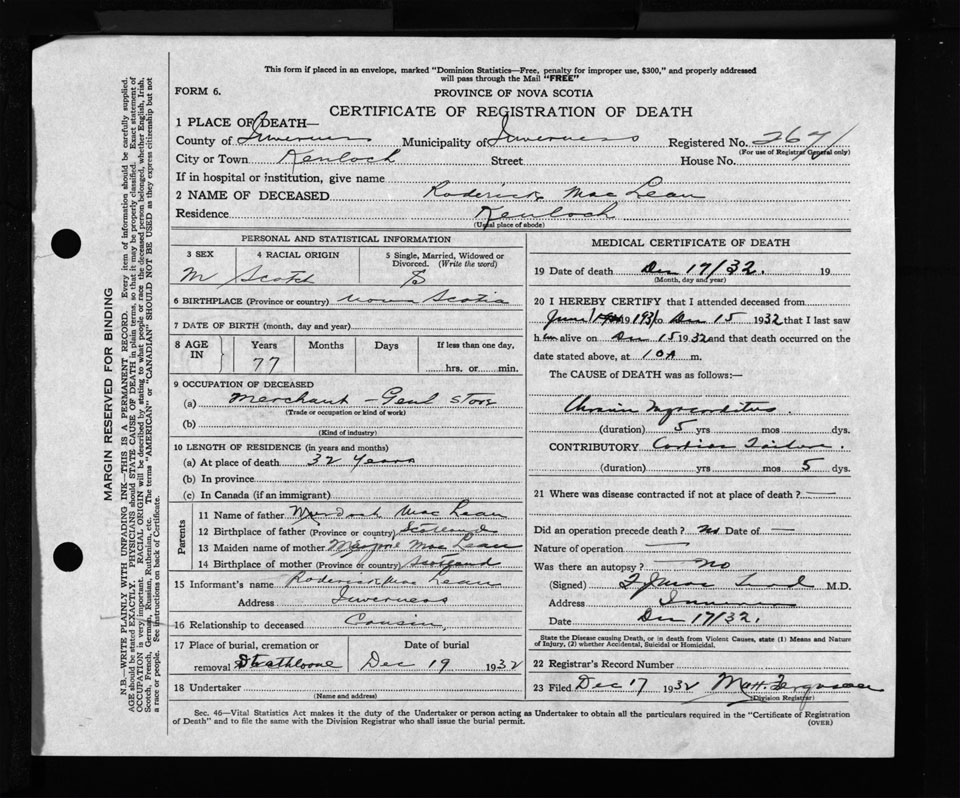 This form if placed in an envelope, marked "Dominion Statistics—Free, penalty for improper use, $300," and properly addressed
will pass through the Mail "FREE"
FORM 6. PROVINCE OF NOVA SCOTIA
CERTIFICATE OF REGISTRATION OF DEATH
1 PLACE OF DEATH—
County of Inverness Municipality of Inverness Registered No.
(For use of Registrar General only)
City or Town Kenloch Street House No.
If in hospital or institution, give name
2 NAME OF DECEASED Roderick MacLean
Residence Kenloch
(Usual place of abode)
PERSONAL AND STATISTICAL INFORMATION
3 SEX 4 RACIAL ORIGIN 5 Single, Married, Widowed or
Divorced. (Write the word)
M Scotch S
6 BIRTHPLACE (Province or country) Nova Scotia
7 DATE OF BIRTH (month, day and year)
8 AGE IN Years Months Days If less than one day,
77 hrs. or min.
9 OCCUPATION OF DECEASED
(a) Merchant - Genl Store
(Trade or occupation or kind of work)
(b)
(Kind of industry)
10 LENGTH OF RESIDENCE (in years and months)
(a) At place of death 32 Years
(b) In province
(c) In Canada (if an immigrant)
Parents
11 Name of father Murdoch MacLean
12 Birthplace of father (Province or country) Scotland
13 Maiden name of mother MacLean
14 Birthplace of mother (Province or country) Scotland
15 Informant's name Roderick MacLean
Address Inverness
16 Relationship to deceased Cousin
17 Place of burial, cremation or Date of burial
removal Strathlorne Dec 19 1932
18 Undertaker
(Name and address)
MEDICAL CERTIFICATE OF DEATH
19 Date of death Dec 17/32. 19
(Month, day and year)
20 I HEREBY CERTIFY that I attended deceased from
June 1931 to Dec 15 1932 that I last saw
him alive on Dec 15 1932 and that death occurred on the
date stated above, at 10 A m.
The CAUSE of DEATH was as follows:—
Chronic Myocarditis.
(duration) 5 yrs mos dys.
CONTRIBUTORY Cardiac Failure.
(duration) yrs mos 5 dys.
21 Where was disease contracted if not at place of death? —
Did an operation precede death? No Date of —
Nature of operation —
Was there an autopsy? — No
(Signed) M.D.
Address Inverness
Date Dec 17/32.
State the Disease causing Death, or in death from Violent Causes, state (1) Means and Nature
of Injury, (2) whether Accidental, Suicidal or Homicidal.
22 Registrar's Record Number
23 Filed Dec 17 1932 Ferguson
(Division Registrar)
Sec. 46—Vital Statistics Act makes it the duty of the Undertaker or person acting as Undertaker to obtain all the particulars required in the "Certificate of Registration
of Death" and to file the same with the Division Registrar who shall issue the burial permit. (OVER)
MARGIN RESERVED FOR BINDING
N.B.—WRITE PLAINLY WITH UNFADING INK—THIS IS A PERMANENT RECORD. Every item of information should be carefully supplied.
AGE should be stated EXACTLY. PHYSICIANS should STATE CAUSE OF DEATH in plain terms, so that it may be properly classified. Exact statement of
OCCUPATION is very important. RACIAL ORIGIN will be described by stating to what people or race the deceased person belonged, whether English, Irish,
Scotch, French, German, Russian, Ruthenian, etc. The terms "AMERICAN" or "CANADIAN" SHOULD NOT BE USED as they express citizenship but not
a race or people. See instructions on back of Certificate.